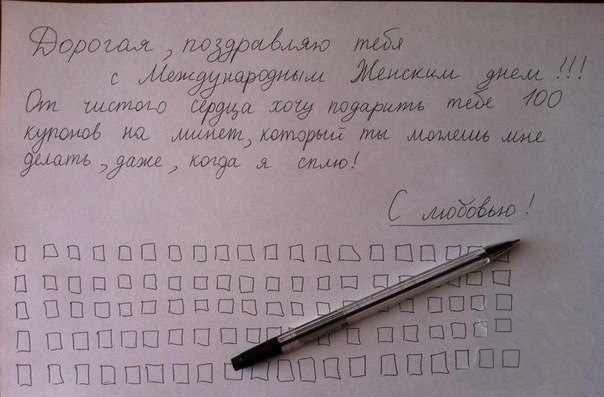 Дорогая, поздравляю тебя
с Международным Женским днем!!!
От чистого сердца хочу подарить тебе 100
купонов на минет, который ты можешь мне
делать, даже, когда я сплю!
С любовью!